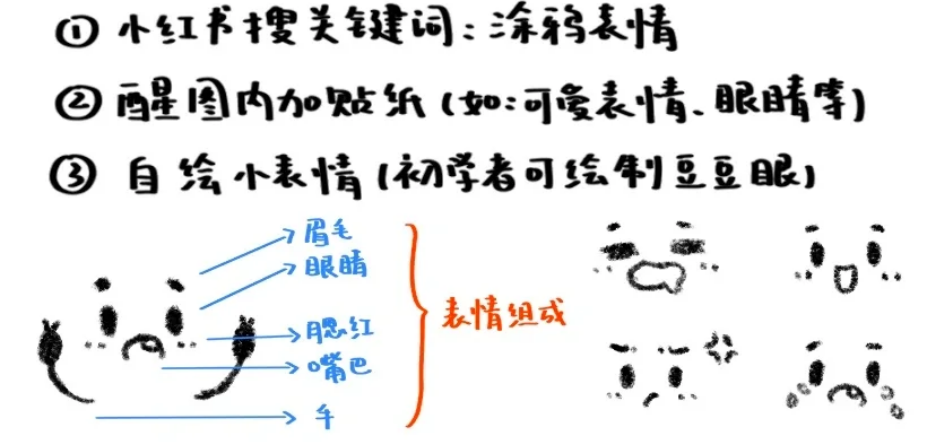 ① 小红书搜关键词:涂鸦表情
② 醒图内加贴纸(如:可爱表情、眼睛等)
③ 自绘小表情(初学者可绘制豆豆眼)
眉毛
眼睛
腮红
嘴巴
手
表情组成